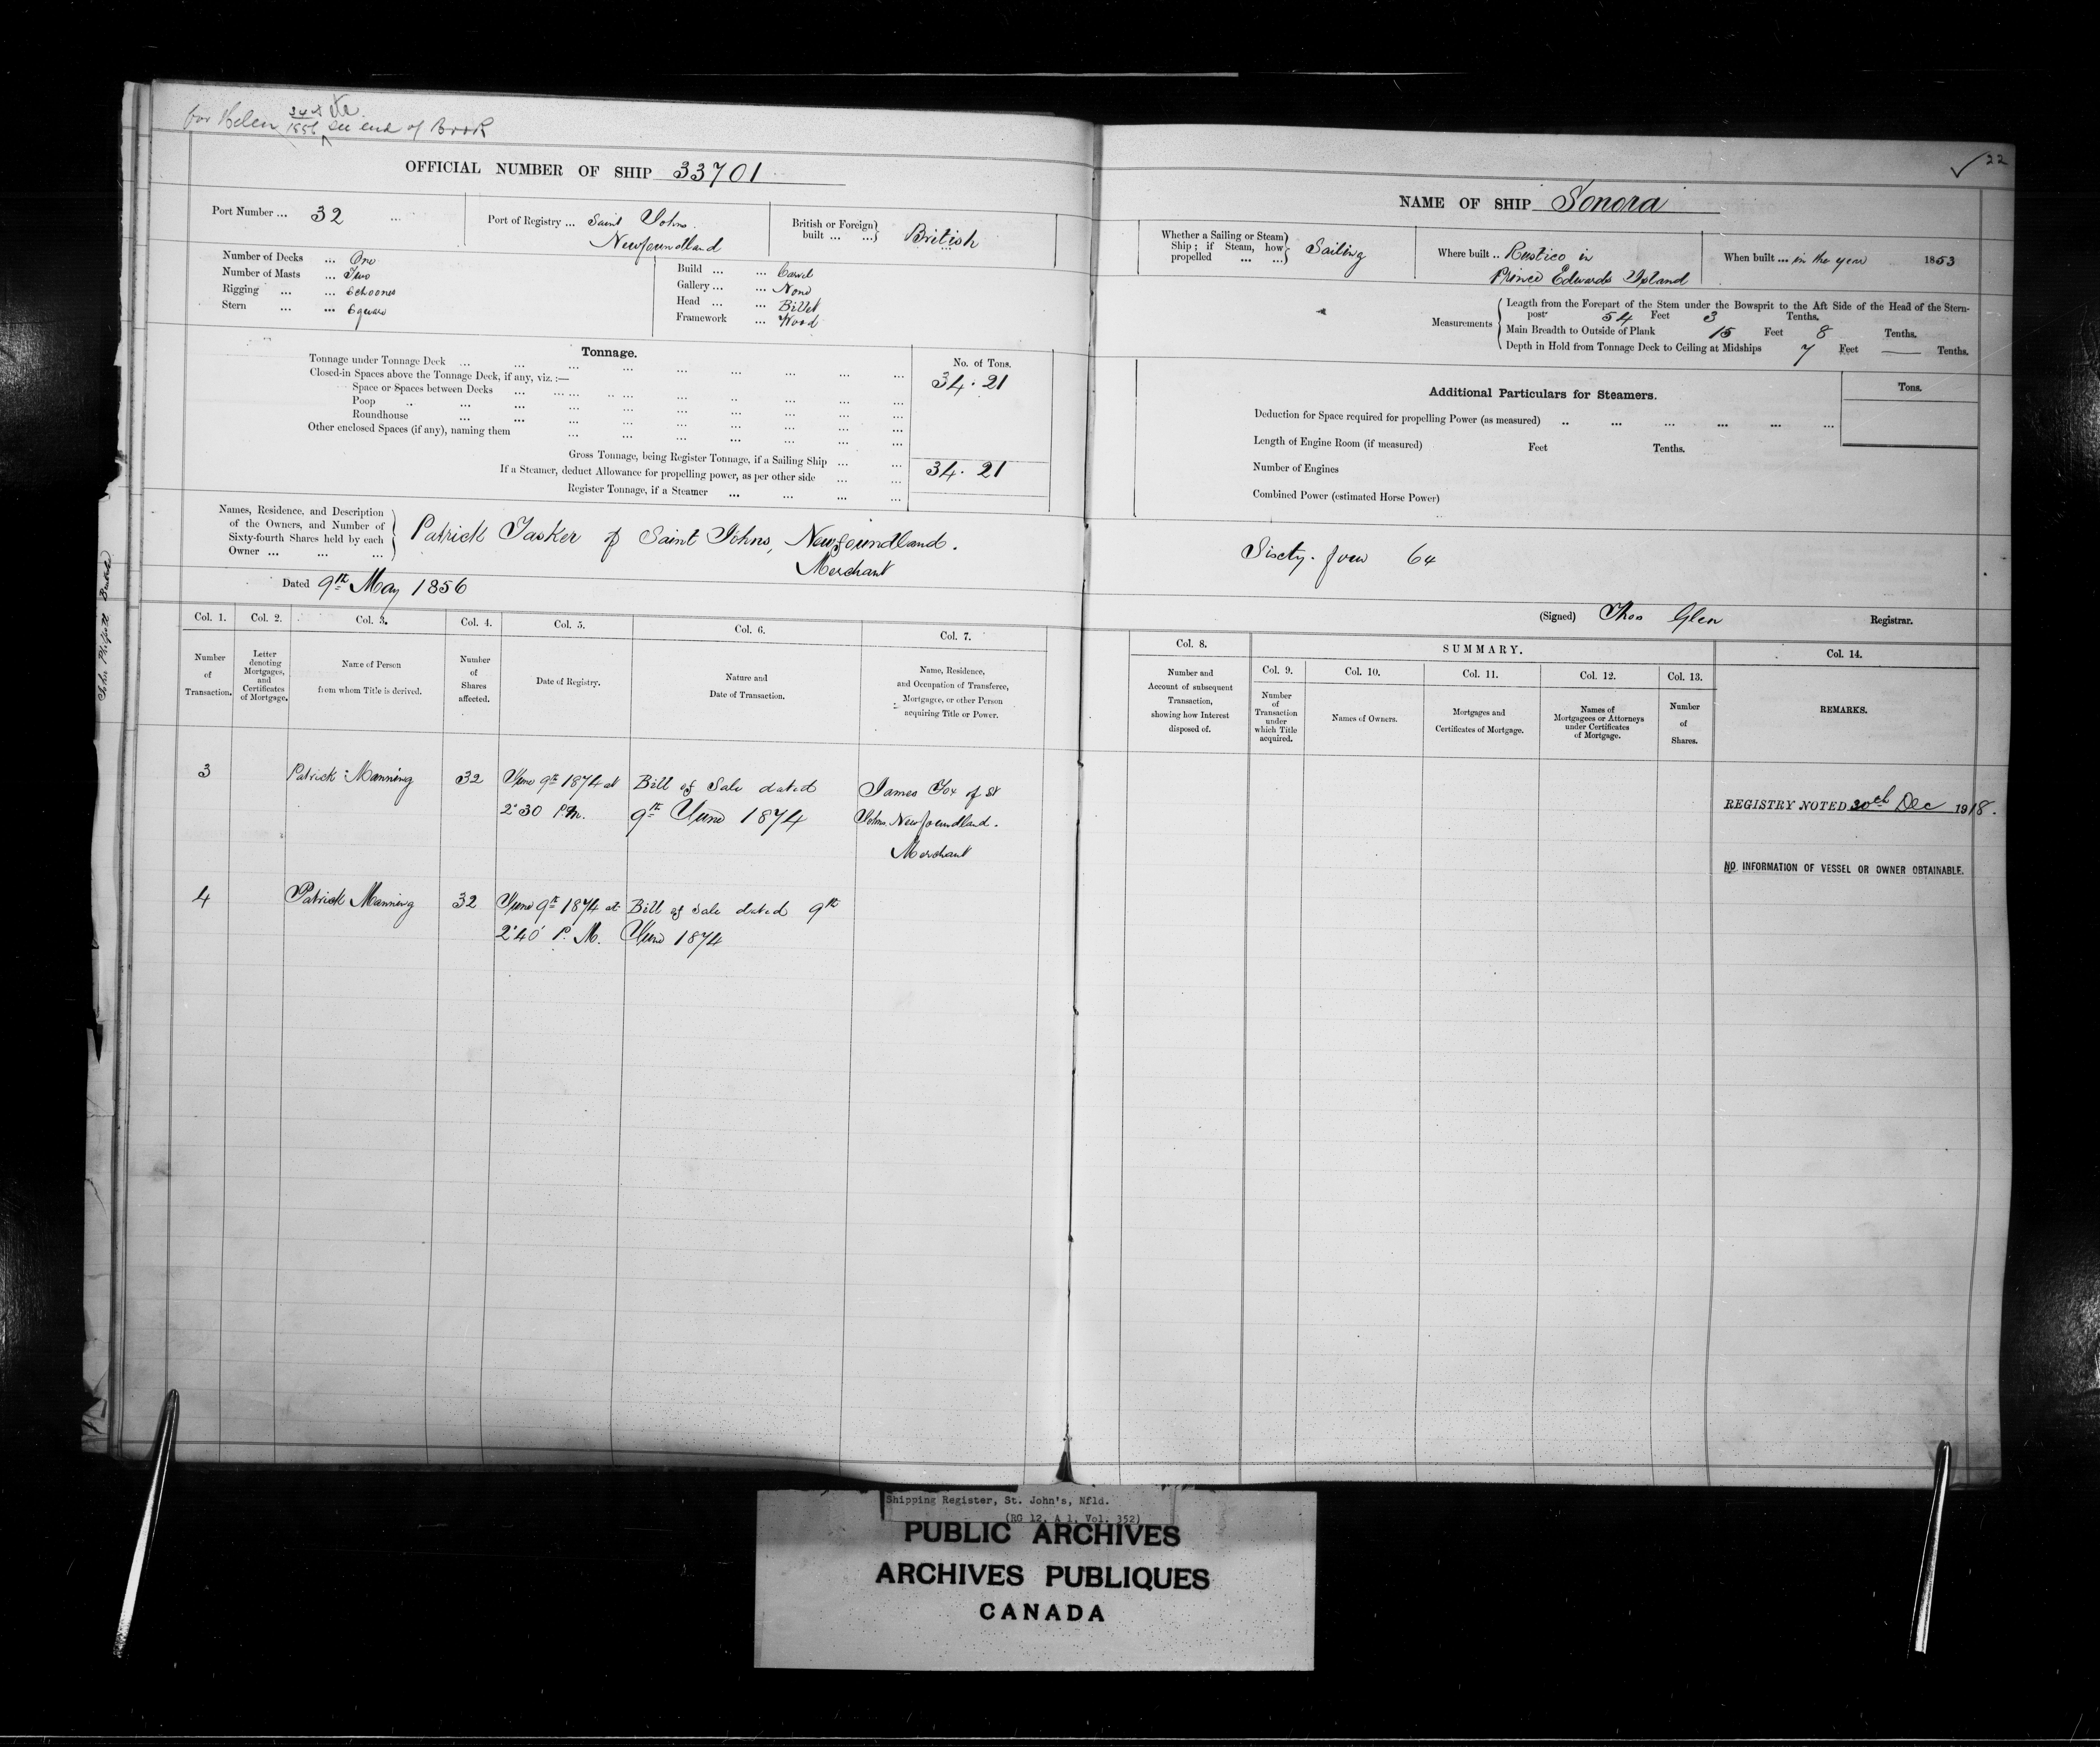 for Helen 34 1856 etc. see end of Book
OFFICIAL NUMBER OF SHIP 33701
Port Number ... 32 ...
Port of Registry ... Saint Johns.
Newfoundland
British or Foreign built ... ... British
Number of Decks ... One
Number of Masts ... Two
Rigging ... ... Schooner
Stern ... ... Square
Build ... ... Carvel
Gallery ... ... None
Head ... ... Billet
Framework ... Wood
Tonnage.
No. of Tons.
Tonnage under Tonnage Deck ... 34.21
Closed-in Spaces above the Tonnage Deck, if any, viz.:—
Space or Spaces between Decks
Poop
Roundhouse
Other enclosed Spaces (if any), naming them
Gross Tonnage, being Register Tonnage, if a Sailing Ship ... ... 34.21
If a Steamer, deduct Allowance for propelling power, as per other side ... ...
Register Tonnage, if a Steamer ... ... ... ...
Names, Residence, and Description
of the Owners, and Number of
Sixty-fourth Shares held by each
Owner ... ... ...
Patrick Tasker of Saint Johns, Newfoundland.
Merchant
Dated 9th May 1856
Col. 1. Col. 2. Col. 3. Col. 4. Col. 5. Col. 6. Col. 7.
Number of Transaction.
Letter denoting Mortgages, and Certificates of Mortgage.
Name of Person from whom Title is derived.
Number of Shares affected.
Date of Registry.
Nature and Date of Transaction.
Name, Residence, and Occupation of Transferee, Mortgagee, or other Person acquiring Title or Power.
3 Patrick Manning 32 June 9th 1874 at Bill of Sale dated James Fox of St
2.30 P.M. 9th June 1874 Johns Newfoundland.
Merchant
4 Patrick Manning 32 June 9th 1874 at Bill of Sale dated 9th
2.40 P.M. June 1874
22
NAME OF SHIP Sonora
Whether a Sailing or Steam
Ship; if Steam, how
propelled ... ...
Sailing
Where built .. Rustico in
Prince Edwards Island
When built ... in the year 1853
Measurements
Length from the Forepart of the Stem under the Bowsprit to the Aft Side of the Head of the Stern-
post 54 Feet 3 Tenths.
Main Breadth to Outside of Plank 15 Feet 8 Tenths.
Depth in Hold from Tonnage Deck to Ceiling at Midships 7 Feet — Tenths.
Additional Particulars for Steamers.
Tons.
Deduction for Space required for propelling Power (as measured)
Length of Engine Room (if measured) Feet Tenths.
Number of Engines
Combined Power (estimated Horse Power)
Sixty-four 64
(Signed) Thos Glen Registrar.
Col. 8.
SUMMARY.
Col. 9. Col. 10. Col. 11. Col. 12. Col. 13. Col. 14.
Number and Account of subsequent Transaction, showing how Interest disposed of.
Number of Transaction under which Title acquired.
Names of Owners.
Mortgages and Certificates of Mortgage.
Names of Mortgagees or Attorneys under Certificates of Mortgage.
Number of Shares.
REMARKS.
REGISTRY NOTED 30th Dec 1918.
NO INFORMATION OF VESSEL OR OWNER OBTAINABLE.
Shipping Register, St. John's, Nfld.
(RG 12, A 1, Vol. 352)
PUBLIC ARCHIVES
ARCHIVES PUBLIQUES
CANADA